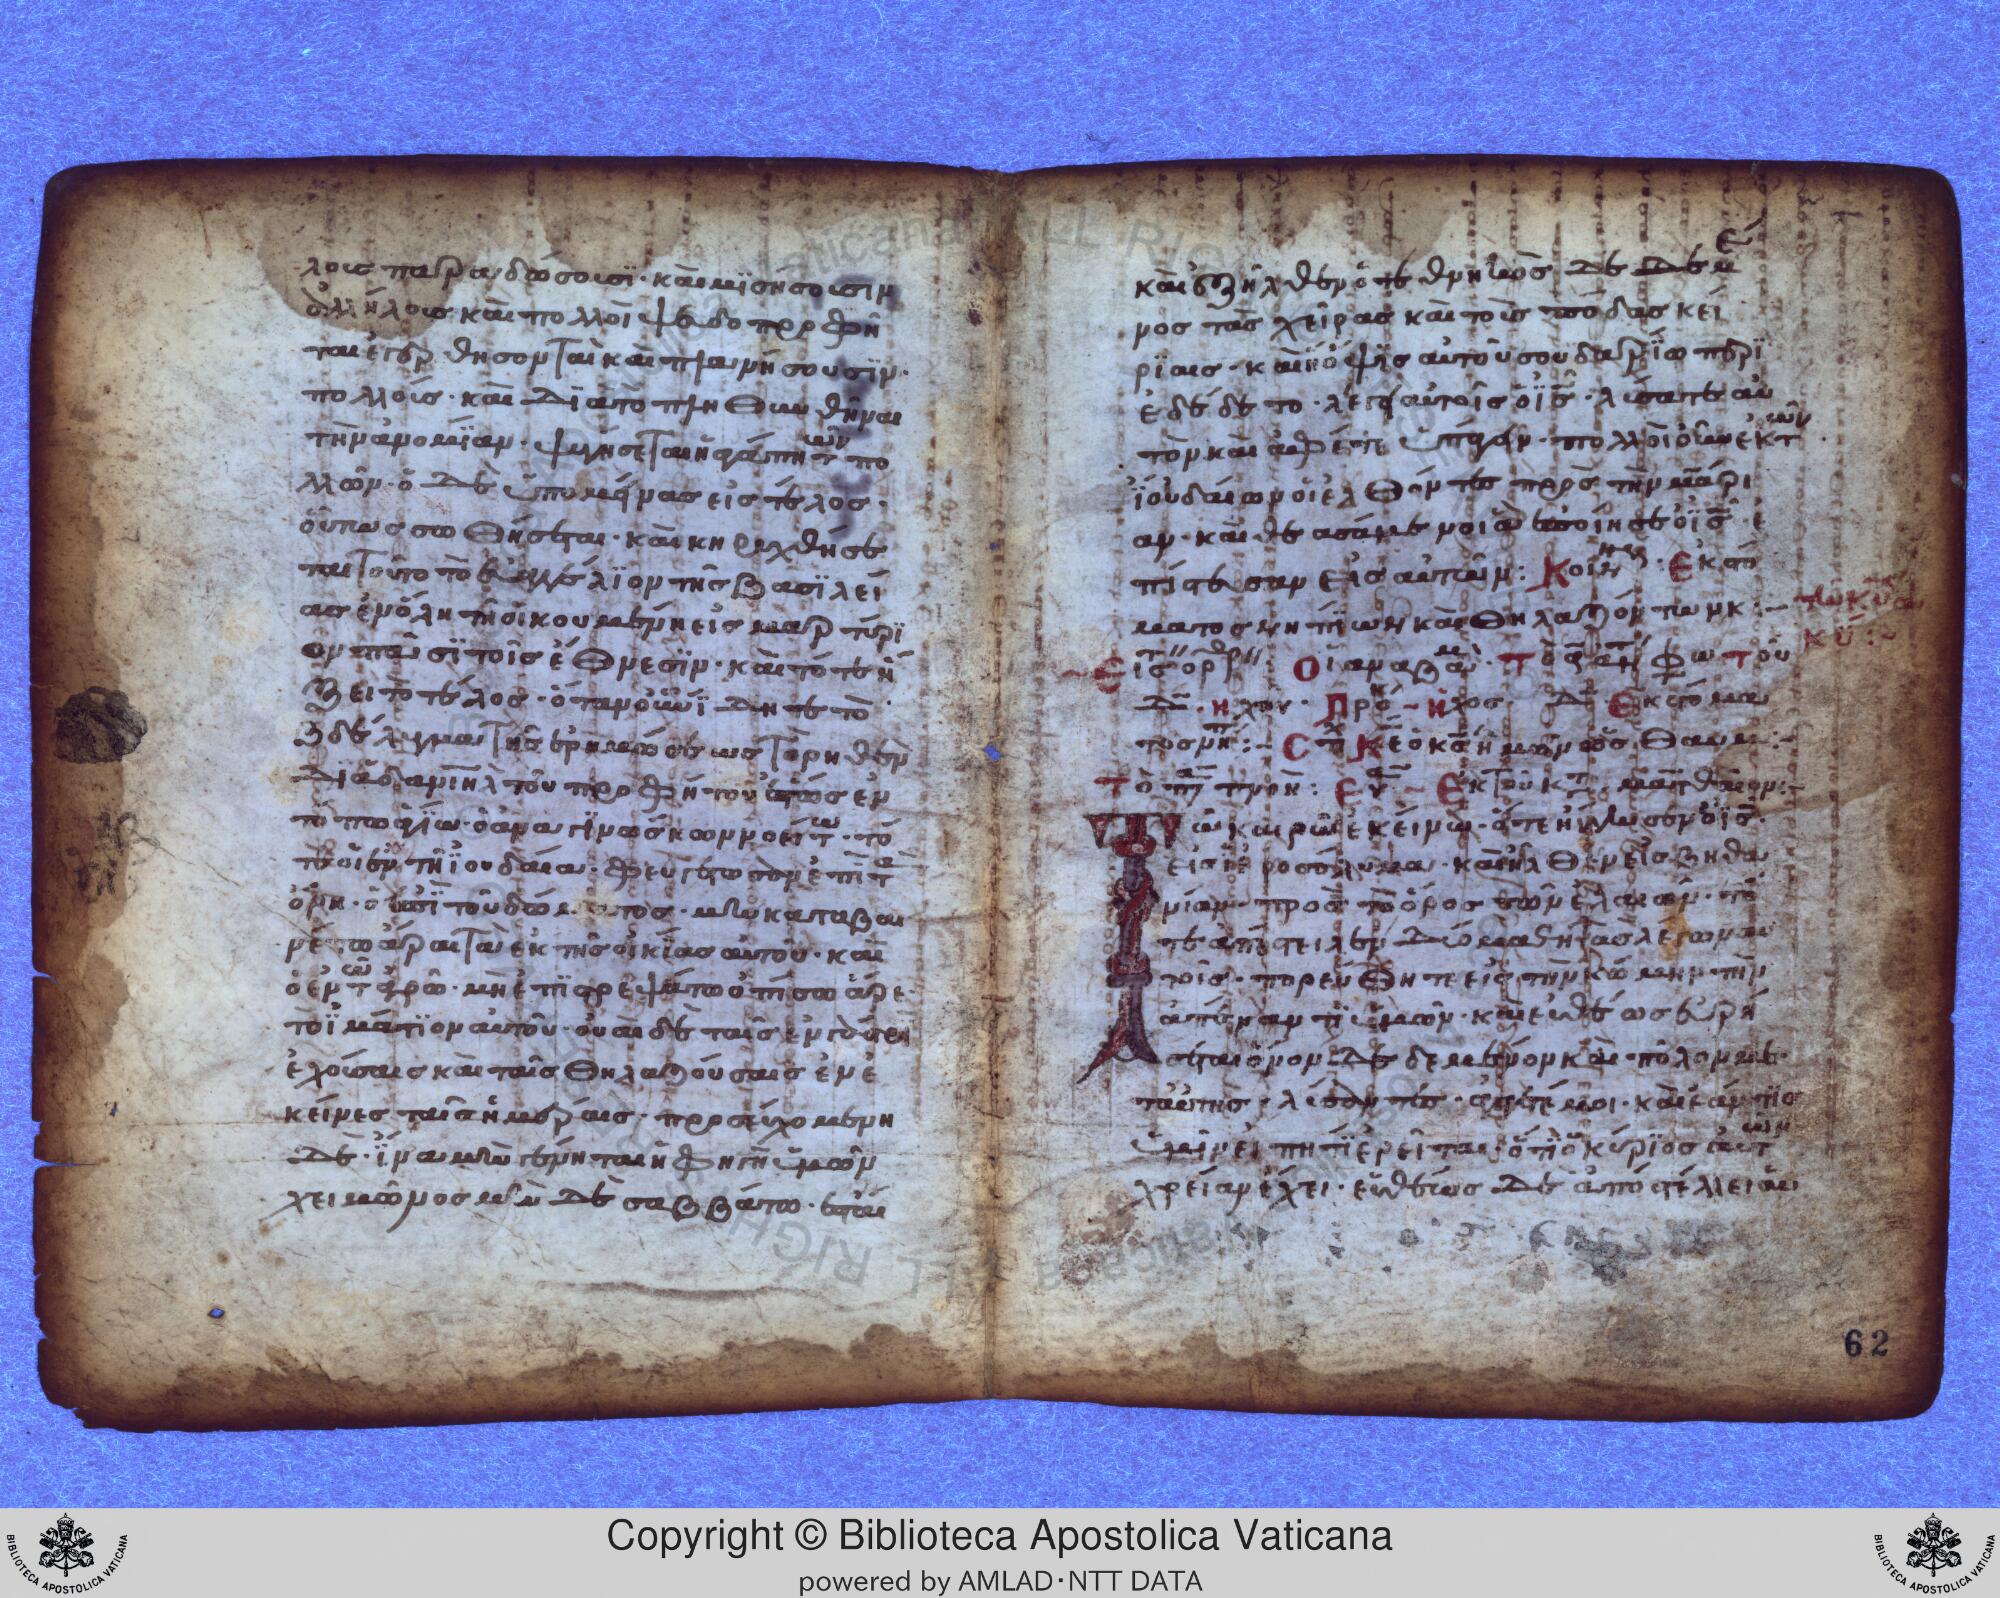 λοις παραδώσουσϊ· καὶ μϊσήσουσιν
ἀλλήλους καὶ πολλοὶ ψευδοπροφῆ
ται ἐγερθήσονται καὶ πλανήσουσϊν·
πολλοὺς· καὶ Δϊὰ τὸ πληθυνθῆναι
τὴν ἀνομϊαν· ψυγήσεται ἡ ἀγάπη τῶν πο
λλῶν· ὁ Δὲ ὑπομείνας εἰς τέλος·
οὗτως σωθήσεται· καὶ κηρυχθήσε
ται τοῦτο τὸ εὐαγγέλϊον τῆς βασϊλεί
ας ἐν ὅλη τῆ οἰκουμένη εἰς μαρτύρϊ
ον πᾶσϊ τοῖς ἔθνεσϊν· καὶ τότε ἥ
ξει τὸ τέλος· ὅταν οὖν ϊΔητε τὸ
βδέλυγμα τῆς ἐρημώσεως τὸ ρηθὲν
Δϊὰ δανιὴλ τοῦ προφήτου ἑστὼς ἐν
τόπω ἁγϊω· ὁ ἀναγϊνώσκων νοείτω· τό
τε οἱ ἐν τῆ ϊουδαία· φευγέτωσαν ἐπὶ τὰ
ὄρη· ὁ ἐπὶ τοῦ δώματος· μὴ καταβαι
νέτω ἆραι τὰ ἐκ τῆς οἰκίας αὐτοῦ· καὶ
ὁ ἐν τῶ ἀγρῶ· μὴ ἐπϊστρεψάτω ὀπίσω ἆραι
τὸ ϊμάτϊον αὐτοῦ· οὐαὶ δὲ ταῖς ἐν γαστρὶ
ἐχούσαις καὶ ταῖς θηλαζούσαις ἐν ἐ
κείνες ταῖς ἡμέραις· προσεύχομενη
Δὲ· ϊνα μὴ γένηται ἡ φηγὴ ὑμῶν
χειμῶνος μὴ Δὲ σαββάτω·
καὶ ἐξῆλθεν ὁ τεθνηκὼς ΔεΔεμέ
νος τὰς χεῖρας καὶ τοὺς πόδας κει
ρϊαις· καὶ ἡ ὄψϊς αὐτοῦ σουδαρϊω περϊ
εδέδετο· λέγει αὐτοῖς ὁ ϊς· λύσατε αὐ
τὸν καὶ ἄφετε ὑπάγειν· πολλοὶ οὖν ἐκ τῶν
ϊουδαίων οἱ ἐλθόντες πρὸς τὴν μαρϊ
αν· καὶ θεασάμενοι ἃ ἐποίησεν ὁ ϊς· ἐ
πίστευσαν εἰς αὐτόν: Κοιν· Εκ στό
ματος νηπίων καὶ θηλαζόντων κ:~
Εἰς
Ηχου· Προκ~ ηχος Δ Εκ στόμα
τος νη:~ Στιχ Κε ὁ κς ἡμῶν ὡς θαυμ:~
Τὸ πρωι: Ευ ~ Εκ τοῦ κτ ματθαιον:~
Τῶ καιρῶ ἐκείνω· ὅτε ἤγγισεν ὁ ϊς·
εἰς ἱεροσόλυμα· καὶ ἦλθεν εἰς βηθα
νίαν· πρὸς τὸ ὄρος τῶν ἐλαιῶν· τό
τε ἀπέστειλεν Δύο μαθητὰς λέγων αὐ
τοῖς· πορεύθητε εἰς τὴν κώμην τὴν
ἀπέναντι ὑμῶν· καὶ εὐθέως εὑρή
σεται ὄνον Δεδεμένον καὶ πῶλον μετ·
αὐτῆς· λύσαντες· ἀγάγετέ μοι· καὶ ἐάν τϊς
ὑμῖν εἴπη τϊ ἐρεῖται· ὅτι ὁ κύρϊος αὐτῶν
χρείαν ἔχει· εὐθέως Δὲ ἀποστέλλει αὐ
62
Copyright © Biblioteca Apostolica Vaticana
powered by AMLAD·NTT DATA